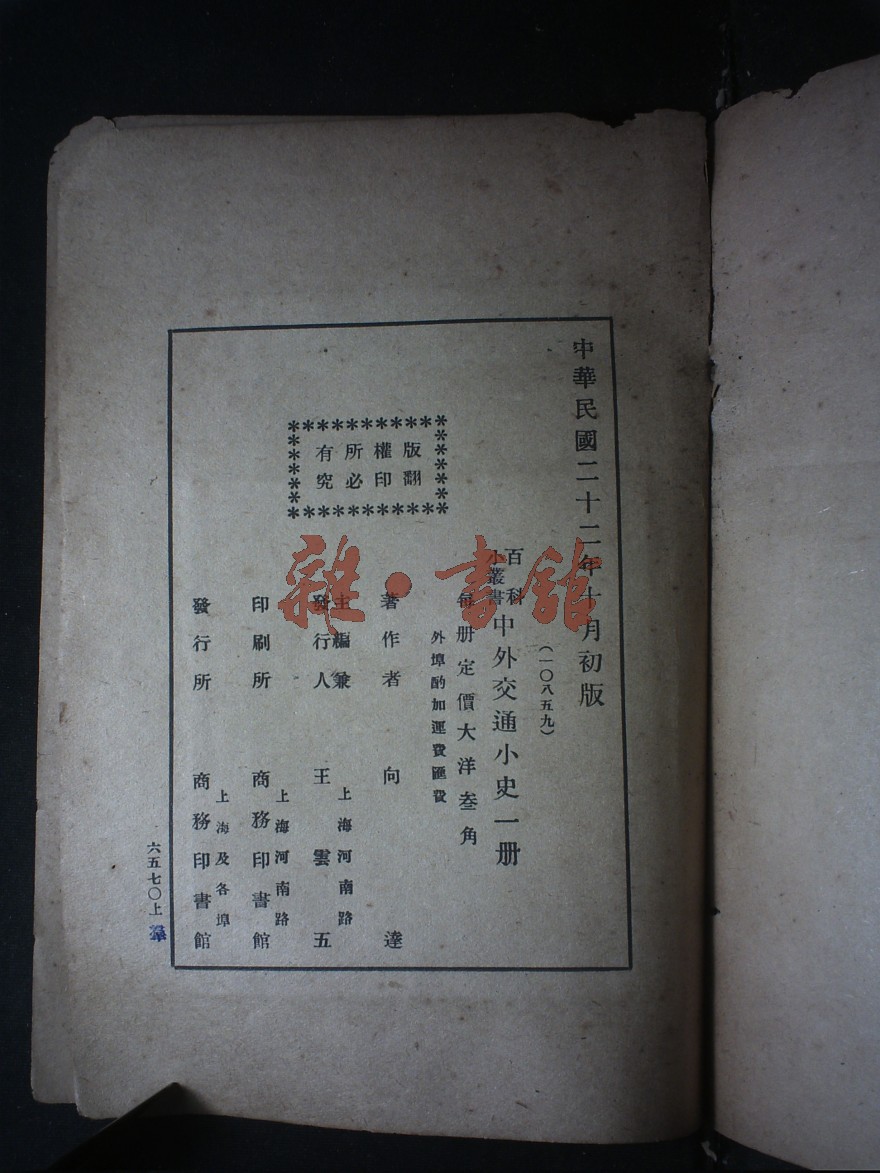 中華民國二十二年十月初版
(一〇八五九)
百科
小叢書
中外交通小史一册
每册定價大洋叁角
外埠酌加運費匯費
版權所有
翻印必究
著作者 向達
主編兼
發行人
上海河南路
王雲五
印刷所
上海河南路
商務印書館
發行所
上海及各埠
商務印書館
六五七〇上
雜·書館